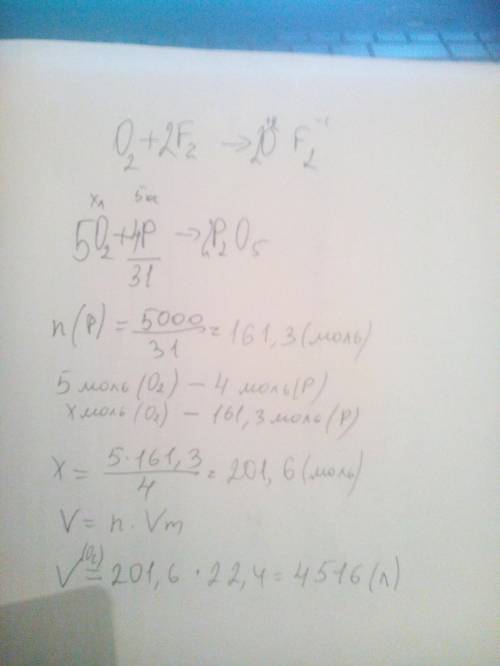 O₂ + 2F₂ → 2O⁺² F₂⁻¹
x л 5 кг
5O₂ + 4P → 2P₂O₅
31
n(P) = 5000/31 = 161,3 (моль)
5 моль (O₂) – 4 моль (P)
x моль (O₂) – 161,3 моль (P)
X = 5·161,3/4 = 201,6 (моль)
V = n · Vm
V(O₂) = 201,6 · 22,4 = 4516 (л)